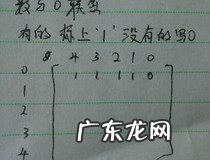 有的标上"1"没有的写0
4 3 2 1 0
0 1 1 1 1 0
1
2
3
4
广东龙网